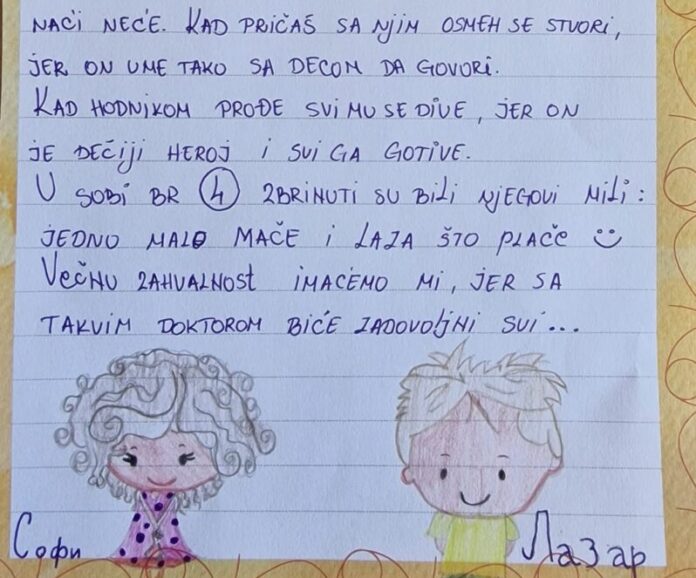 NAĆI NEĆE. KAD PRIČAŠ SA NJIM OSMEH SE STVORI,
JER ON UME TAKO SA DECOM DA GOVORI.
KAD HODNIKOM PROĐE SVI MU SE DIVE, JER ON
JE DEČIJI HEROJ I SVI GA GOTIVE.
U SOBI BR 4 ZBRINUTI SU BILI NJEGOVI MILI:
JEDNO MALO MAČE I LAZA ŠTO PLAČE ☺
VEČNU ZAHVALNOST IMAĆEMO MI, JER SA
TAKVIM DOKTOROM BIĆE ZADOVOLJNI SVI...
Софи
Лазар